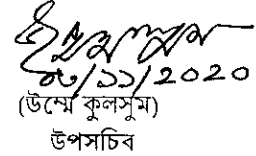 ০৮/১১/2020
(উম্মে কুলসুম)
উপসচিব